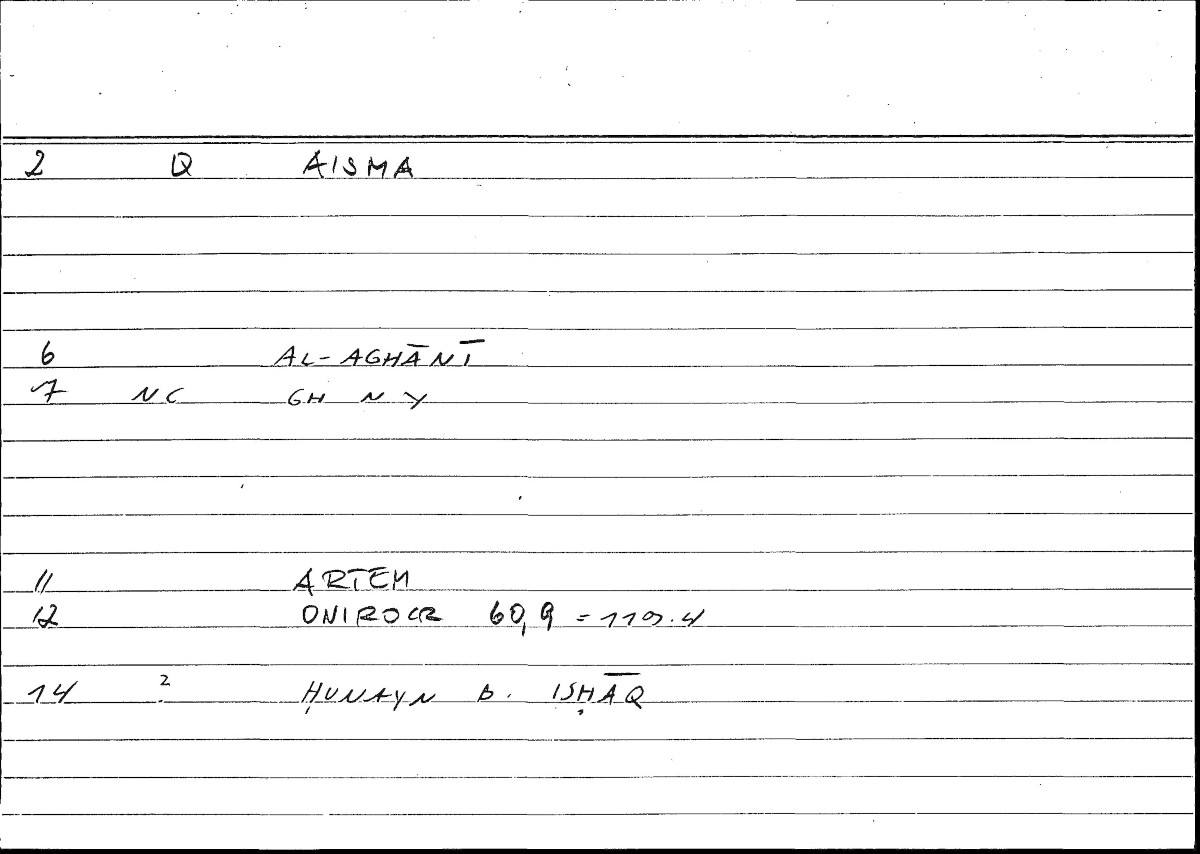 2 Q AISMA
6 AL-AGHĀNĪ
7 NC GH N Y
11 ARTEM
12 ONIROCR 60,9 = 119.4
14 ? ḤUNAYN B. ISḤĀQ